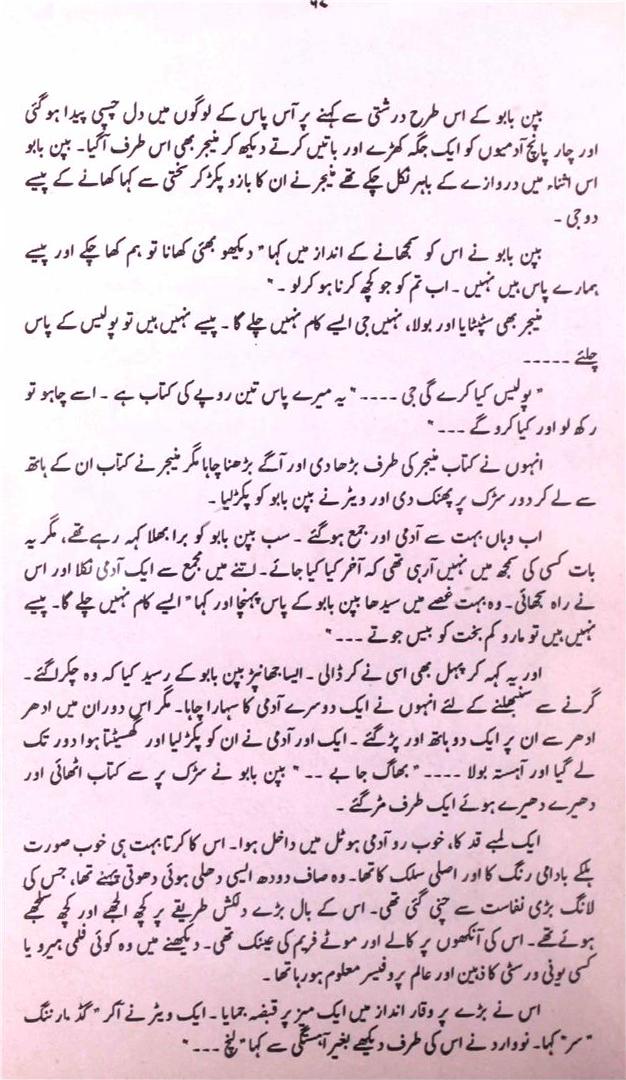 ۶۸
بپن بابو کے اس طرح درشتی سے کہنے پر آس پاس کے لوگوں میں دل چسپی پیدا ہو گئی
اور چار پانچ آدمیوں کو ایک جگہ کھڑے اور باتیں کرتے دیکھ کر منیجر بھی اس طرف آگیا۔ بپن بابو
اس اثناء میں دروازے کے باہر نکل چکے تھے منیجر نے ان کا بازو پکڑ کر سختی سے کہا کھانے کے پیسے
دو جی ۔
بپن بابو نے اس کو سمجھانے کے انداز میں کہا " دیکھو بھئی کھانا تو ہم کھا چکے اور پیسے
ہمارے پاس ہیں نہیں ۔ اب تم کو جو کچھ کرنا ہو کر لو ۔ "
منیجر بھی سٹپٹایا اور بولا، نہیں جی ایسے کام نہیں چلے گا ۔ پیسے نہیں ہیں تو پولیس کے پاس
چلئے ۔۔۔۔۔
" پولیس کیا کرے گی جی ۔۔۔۔ " یہ میرے پاس تین روپے کی کتاب ہے ۔ اسے چاہو تو
رکھ لو اور کیا کرو گے ۔۔۔ "
انہوں نے کتاب منیجر کی طرف بڑھا دی اور آگے بڑھنا چاہا مگر منیجر نے کتاب ان کے ہاتھ
سے لے کر دور سڑک پر پھینک دی اور ویٹر نے بپن بابو کو پکڑ لیا ۔
اب وہاں بہت سے آدمی اور جمع ہو گئے ۔ سب بپن بابو کو برا بھلا کہہ رہے تھے، مگر یہ
بات کسی کی سمجھ میں نہیں آرہی تھی کہ آخر کیا کیا جائے ۔ اتنے میں مجمع سے ایک آدمی نکلا اور اس
نے راہ سجھائی ۔ وہ بہت غصے میں سیدھا بپن بابو کے پاس پہنچا اور کہا " ایسے کام نہیں چلے گا ۔ پیسے
نہیں ہیں تو مارو کم بخت کو بیس جوتے ۔۔۔ "
اور یہ کہہ کر پہل بھی اسی نے کر ڈالی ۔ ایسا جھانپڑ بپن بابو کے رسید کیا کہ وہ چکرا گئے ۔
گرنے سے سنبھلنے کے لئے انہوں نے ایک دوسرے آدمی کا سہارا چاہا ۔ مگر اس دوران میں ادھر
ادھر سے ان پر ایک دو ہاتھ اور پڑ گئے ۔ ایک اور آدمی نے ان کو پکڑ لیا اور گھسیٹتا ہوا دور تک
لے گیا اور آہستہ بولا ۔۔۔۔ " بھاگ جا بے ۔۔ " بپن بابو نے سڑک پر سے کتاب اٹھائی اور
دھیرے دھیرے ہوئے ایک طرف مڑ گئے ۔
ایک لمبے قد کا، خوب رو آدمی ہوٹل میں داخل ہوا ۔ اس کا کرتا بہت ہی خوب صورت
ہلکے بادامی رنگ کا اور اصلی سلک کا تھا ۔ وہ صاف دودھ ایسی دھلی ہوئی دھوتی پہنے تھا، جس کی
لانگ بڑی نفاست سے چنی گئی تھی ۔ اس کے بال بڑے دلکش طریقے پر کچھ الجھے اور کچھ سلجھے
ہوئے تھے ۔ اس کی آنکھوں پر کالے اور موٹے فریم کی عینک تھی ۔ دیکھنے میں وہ کوئی فلمی ہیرو یا
کسی یونی ورسٹی کا ذہین اور عالم پروفیسر معلوم ہو رہا تھا ۔
اس نے بڑے پر وقار انداز میں ایک میز پر قبضہ جمایا ۔ ایک ویٹر نے آکر " گڈ مارننگ
" سر " کہا ۔ نووارد نے اس کی طرف دیکھے بغیر آہستگی سے کہا " لنچ ۔۔۔ "